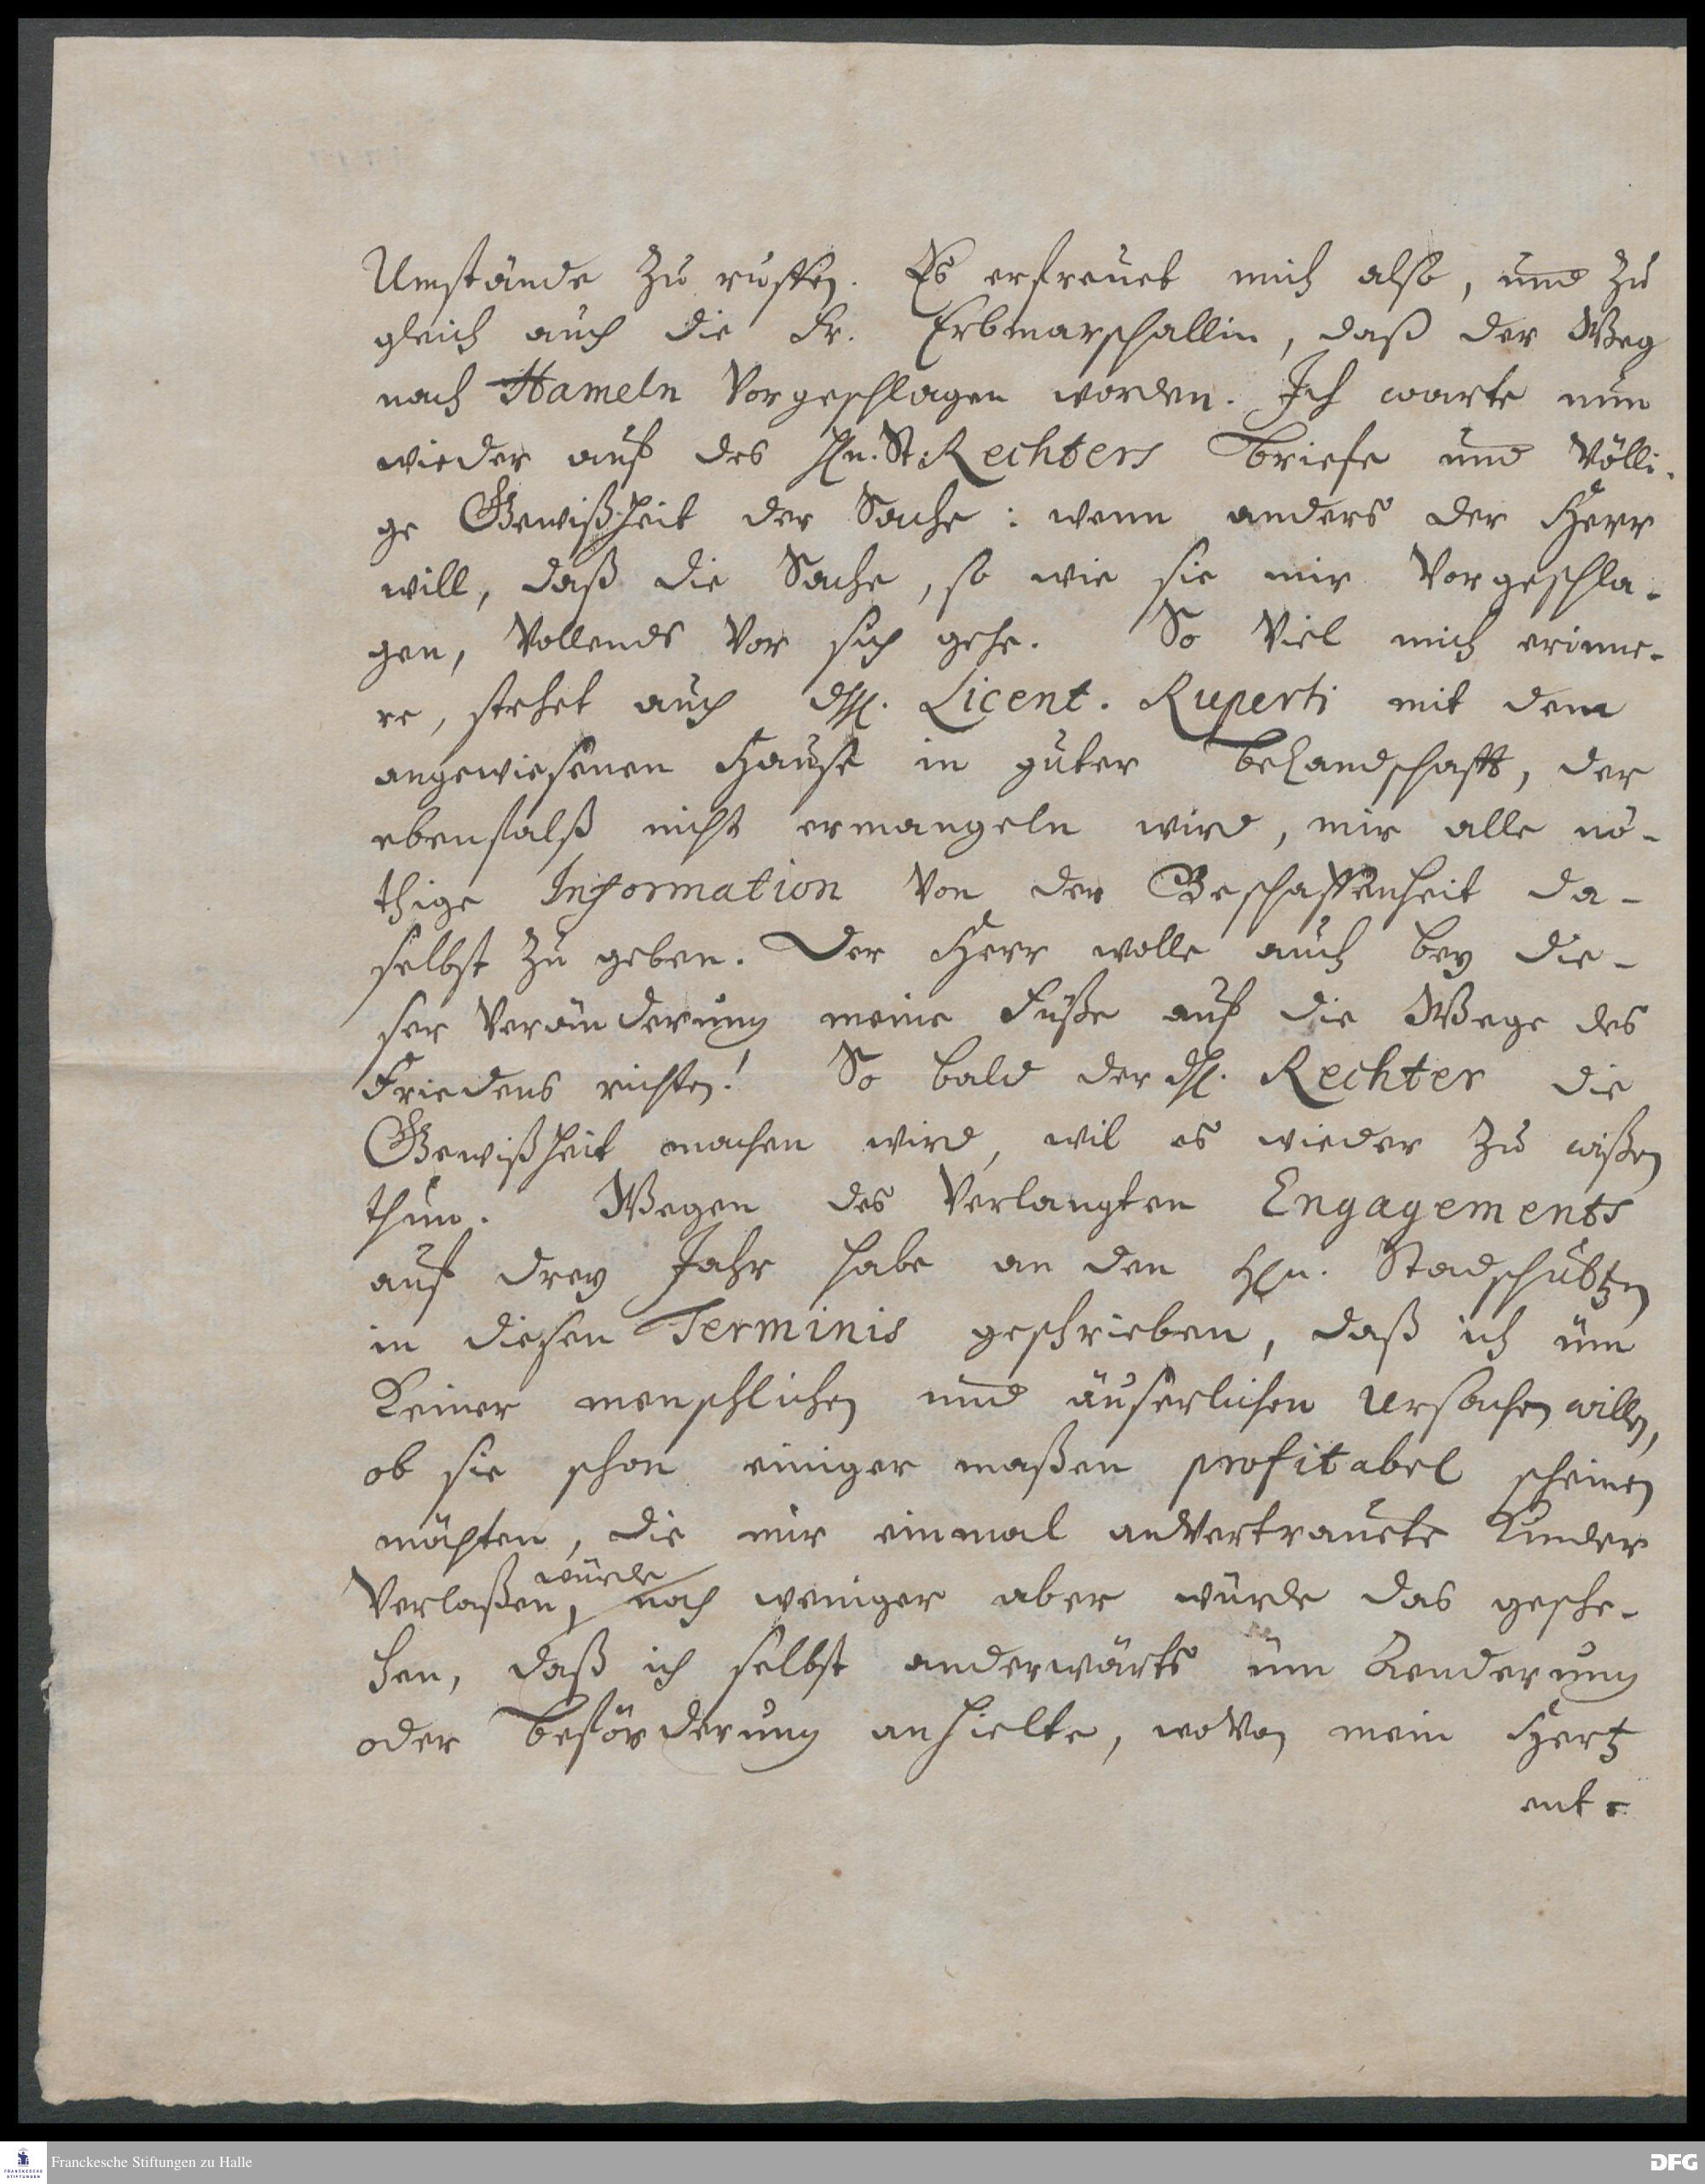 Umstände zu ruffen. Es erfreuet mich also, und zu
gleich auch die Fr. Erbmarschallin, daß der Weg
nach Hameln vorgeschlagen worden. Ich warte nun
wieder auf des Hn. St. Rechters Briefe und völli-
ge Gewißheit der Sache: wenn anders der Herr
will, daß die Sache, so wie sie mir vorgeschla-
gen, vollends vor sich gehe. So viel mich erinne-
re, stehet auch Licent. Ruperti mit dem
angewiesenen Hause in guter Bekandschafft, der
ebenfalß nicht ermangeln wird, mir alle nö-
thige Information von der Beschaffenheit da-
selbst zu geben. Der Herr wolle auch bey die-
ser Veränderung meine Füße auf die Wege des
Friedens richten! So bald der H. Rechter die
Gewißheit machen wird, wil es wieder zu wißen
thun. Wegen des verlangten Engagements
auf drey Jahr habe an den Hn. Stadschültzen
in diesen Terminis geschrieben, daß ich üm
keiner menschlichen und äuserlichen Ursachen willen,
ob sie schon einiger maßen profitabel scheinen
möchten, die mir einmal anvertrauete Kinder
verlaßen würde, noch weniger aber würde das gesche-
hen, daß ich selbst anderwärts üm Aenderung
oder Beförderung anhielte, wovon mein Hertz
ent-
Franckesche Stiftungen zu Halle
FRANCKESCHE STIFTUNGEN
DFG